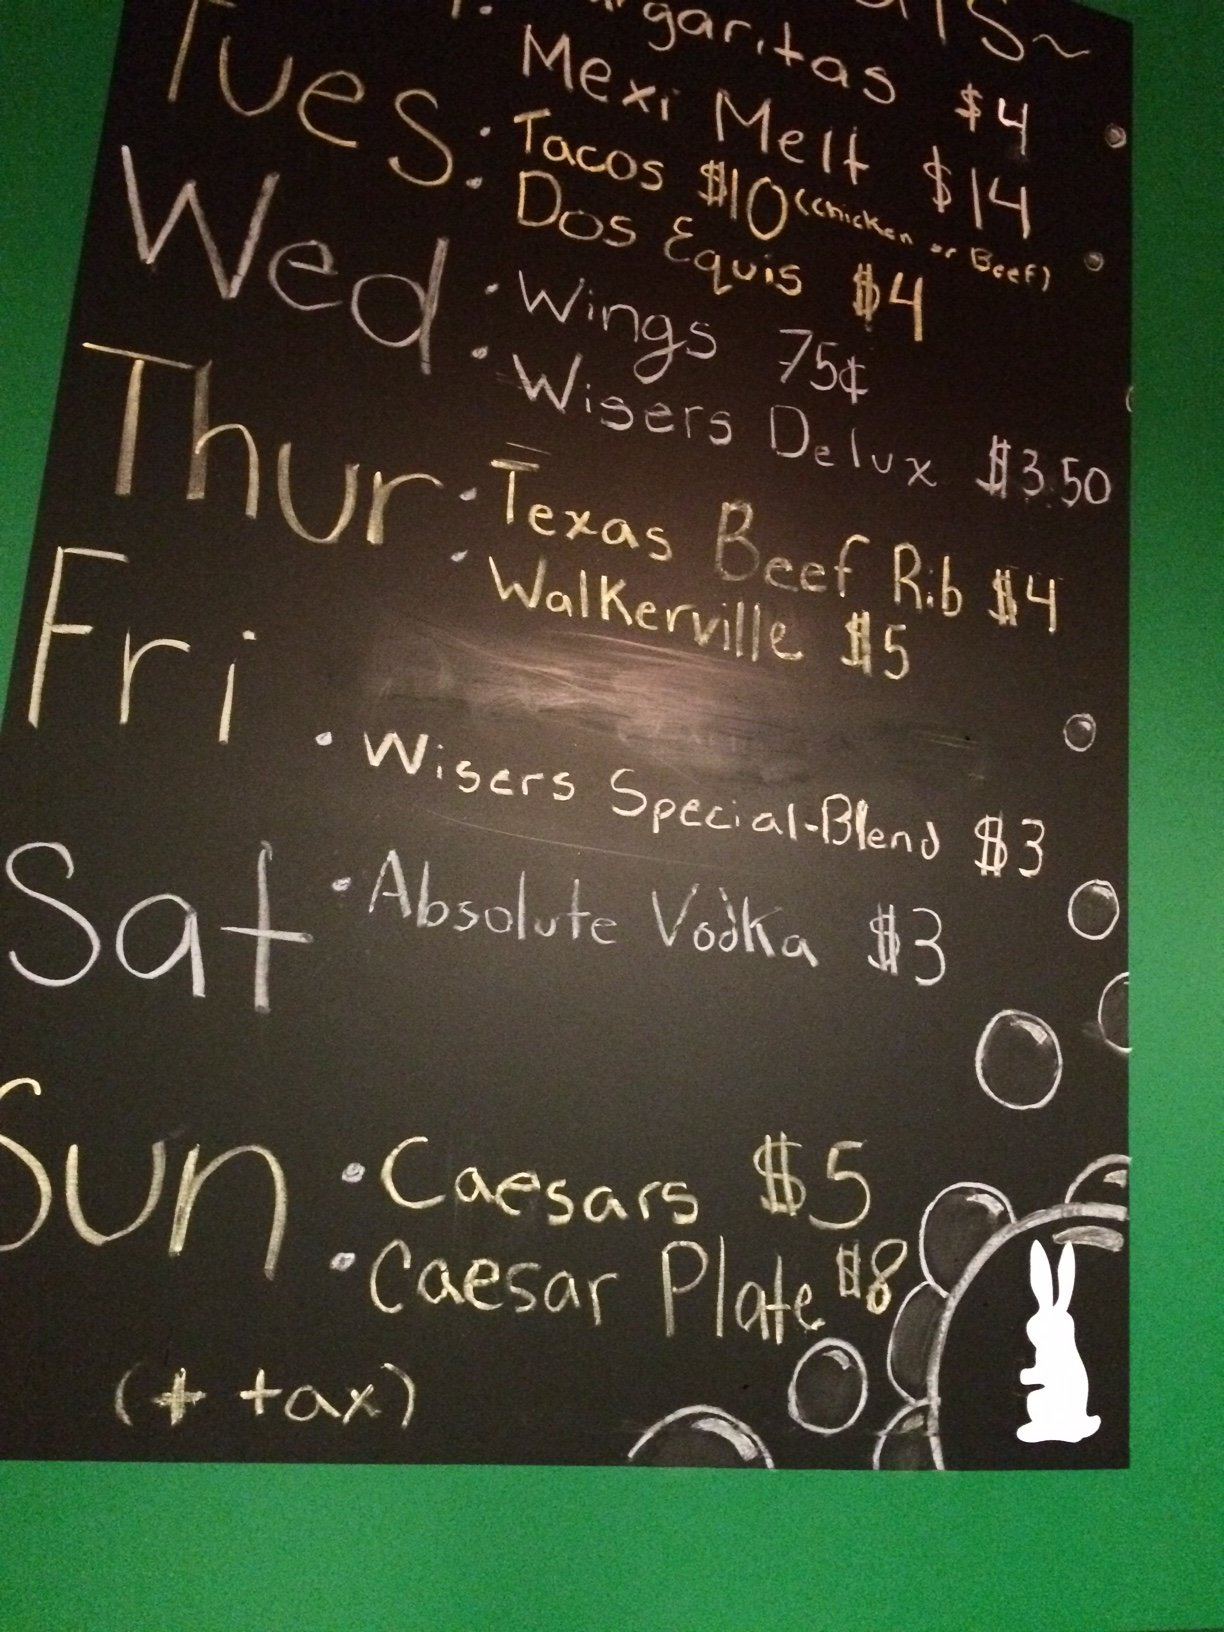 Margaritas $4
Mexi Melt $14
Tues · Tacos $10 (Chicken or Beef)
· Dos Equis $4
Wed · Wings 75¢
· Wisers Delux $3.50
Thur · Texas Beef Rib $4
· Walkerville $5
Fri · Wisers Special-Blend $3
Sat · Absolute Vodka $3
Sun · Caesars $5
· Caesar Plate $8
(+ tax)